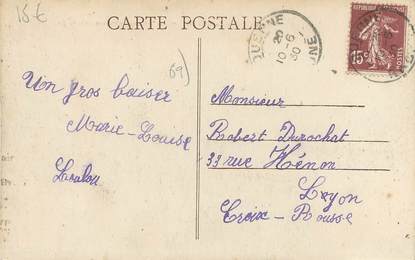 15 €
CARTE POSTALE
69)
20
10-6
30
15c
POSTES
Un gros baiser
Marie-Louise
Monsieur
Robert Durochat
33 rue Hénon
Lyon
Croix-Rousse